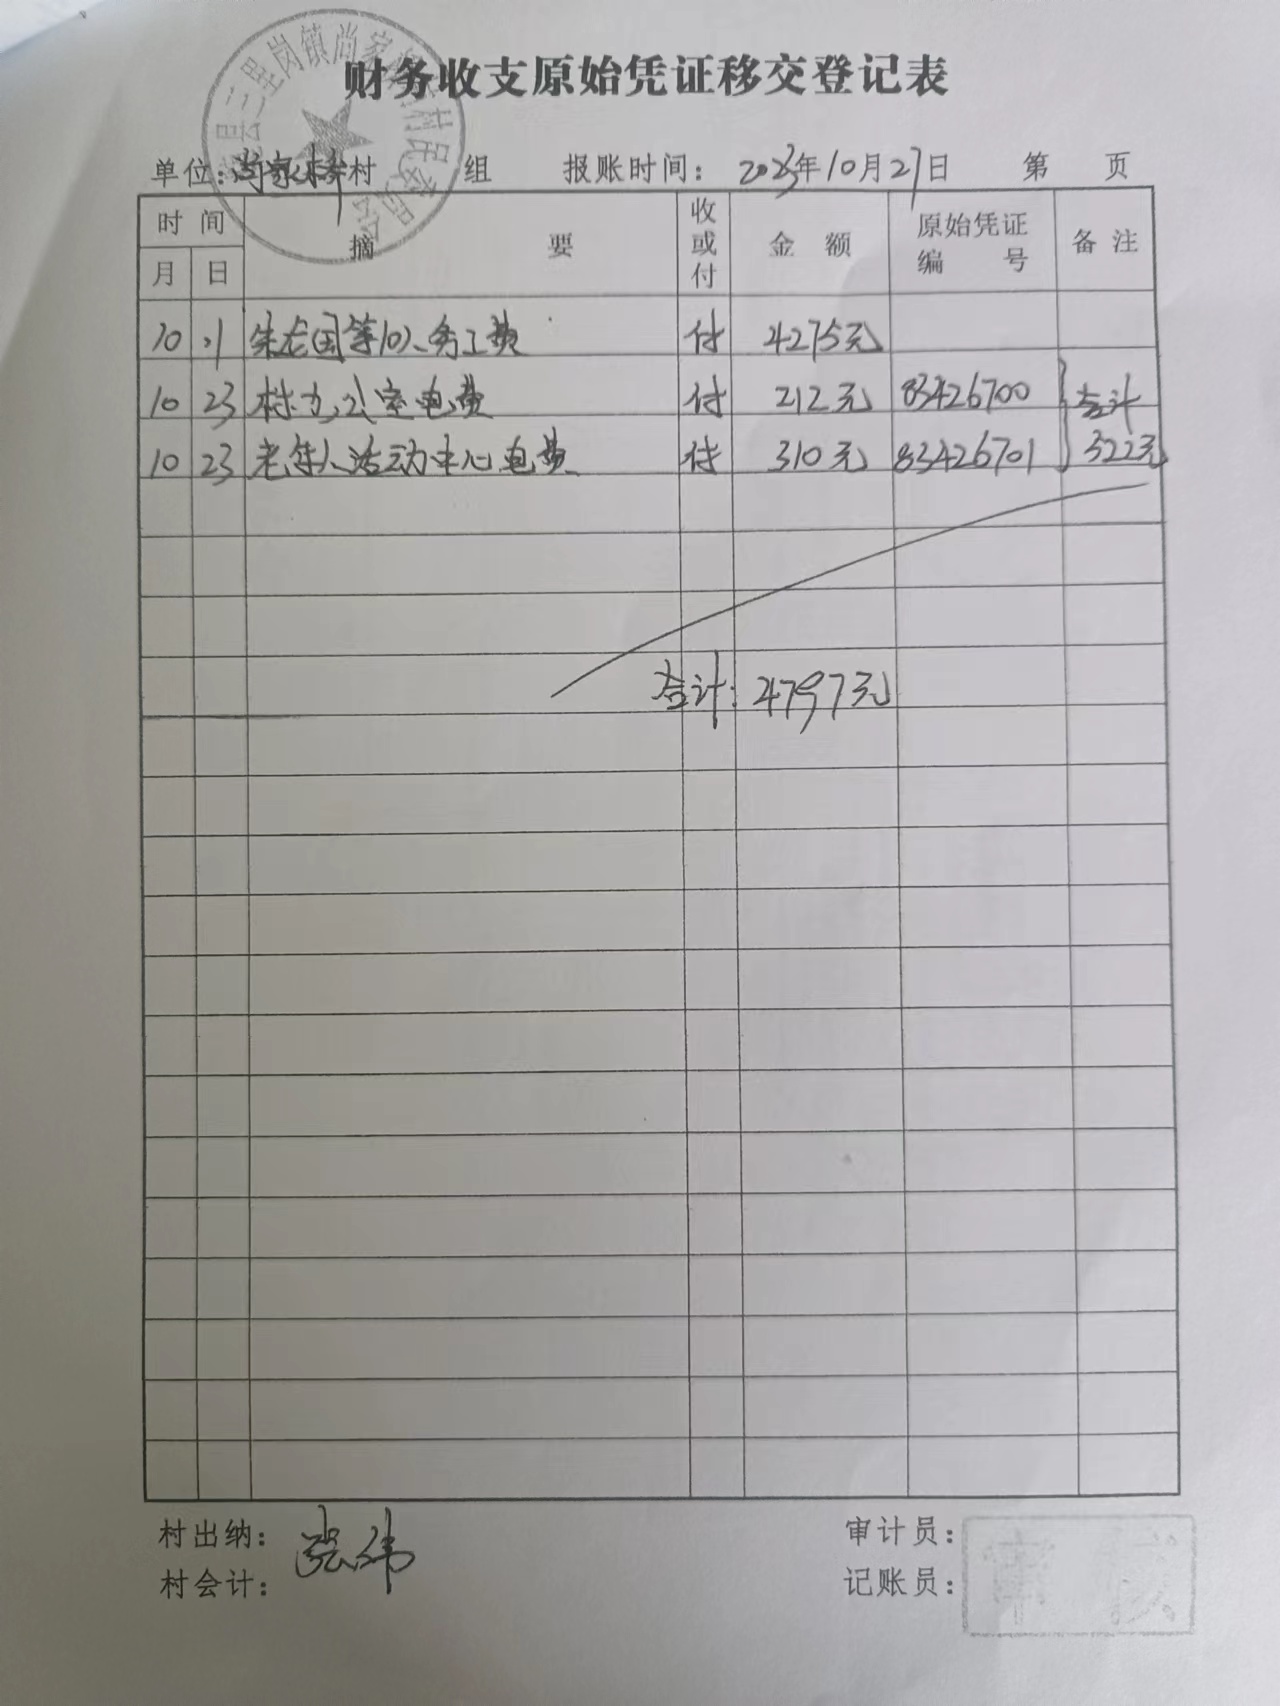 财务收支原始凭证移交登记表
三里岗镇尚家 村民委员会
单位：尚家桥村 组 报账时间：2023年10月27日 第 页
时间 摘要 收或付 金额 原始凭证编号 备注
月 日
10 21 朱 国等10人务工费 付 4275元
10 23 村办公室电费 付 212元 83426700 合计
10 23 老年人活动中心电费 付 310元 83426701 522元
合计：4797元
村出纳： 张伟 审计员：
村会计： 记账员：
审核